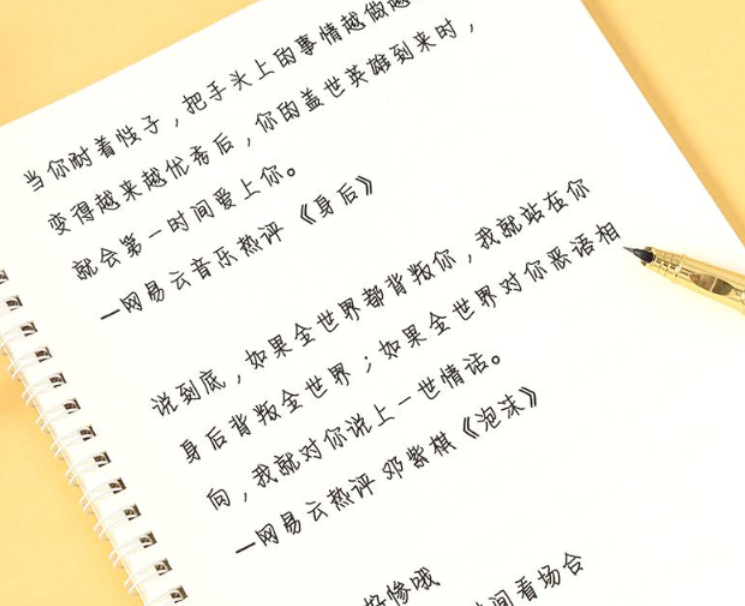 当你耐着性子，把手头上的事情越做越
变得越来越优秀后，你的盖世英雄到来时，
就会第一时间爱上你。
—网易云音乐热评《身后》
说到底，如果全世界都背叛你，我就站在你
身后背叛全世界；如果全世界对你恶语相
向，我就对你说上一世情话。
—网易云热评 邓紫棋《泡沫》
好惨哦
时间看场合